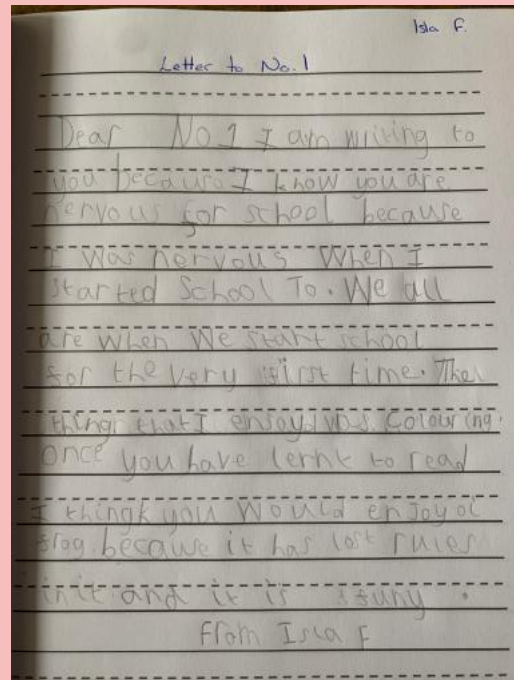 Isla F.
Letter to No.1
Dear No 1 I am writing to
you because I know you are
nervous for school because
I was nervous When I
started School To. We all
are when We start school
for the very first time. The
thing that I enjoyd was Colouring.
Once you have lernt to read
I thingk you Would enjoy oi
frog because it has lost rules
in it and it is funy.
From Isla F